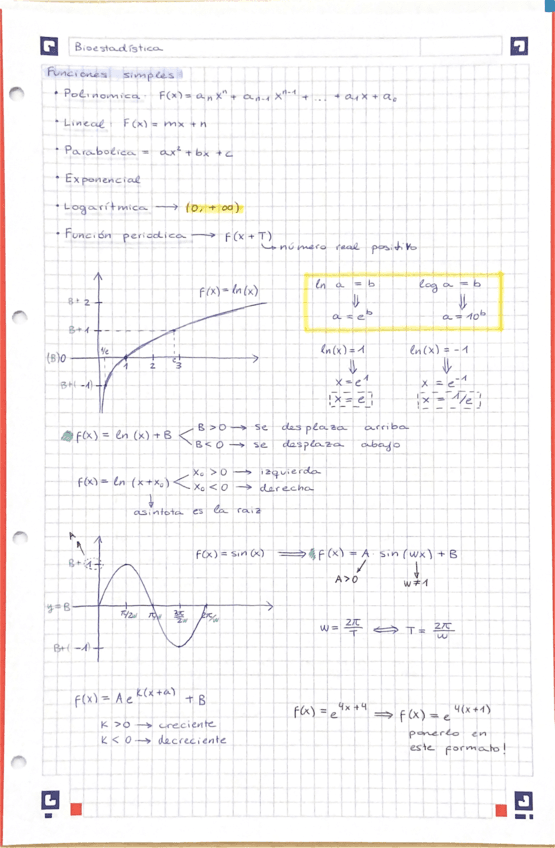 Bioestadística
Funciones simples
• Polinomica: F(x) = aₙxⁿ + aₙ₋₁xⁿ⁻¹ + ... + a₁x + a₀
• Lineal: F(x) = mx + n
• Parabolica = ax² + bx + c
• Exponencial
• Logarítmica → (0, +∞)
• Función periodica → F(x+T)
↳ número real positivo
F(x) = ln(x)
B+2
B+1
(B)0
B+(-1)
1/e
1
2
3
ln a = b
⇓
a = eᵇ
log a = b
⇓
a = 10ᵇ
ln(x) = 1
⇓
x = e¹
x = e
ln(x) = -1
⇓
x = e⁻¹
x = 1/e
f(x) = ln(x) + B
B > 0 → se desplaza arriba
B < 0 → se desplaza abajo
f(x) = ln(x+x₀)
x₀ > 0 → izquierda
x₀ < 0 → derecha
↓
asíntota es la raiz
A
B+(1)
y=B
B+(-1)
F(x) = sin(x) ⟹ f(x) = A sin(wx) + B
A>0
w≠1
w = 2π/T ⟺ T = 2π/w
f(x) = A e^(k(x+a)) + B
K > 0 → creciente
K < 0 → decreciente
f(x) = e^(4x+4) ⟹ f(x) = e^(4(x+1))
ponerlo en
este formato!